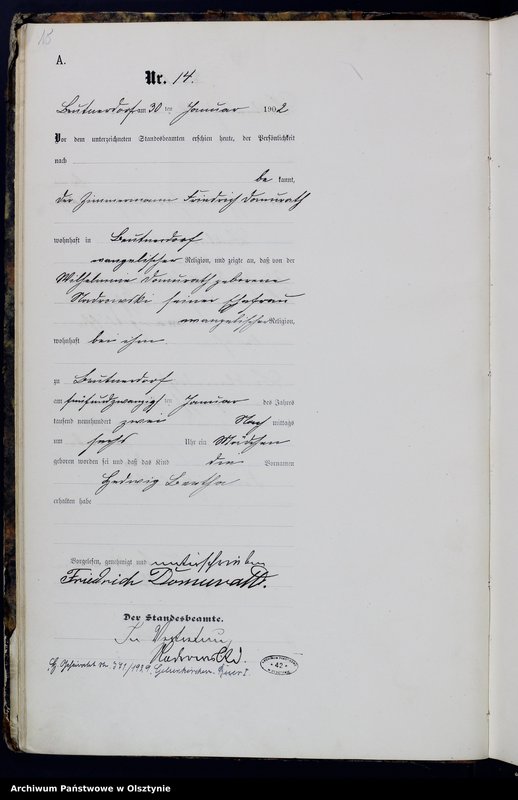 15
A.
Nr. 14.
Beutnerdorf am 30 ten Januar 1902
Vor dem unterzeichneten Standesbeamten erschien heute, der Persönlichkeit
nach
be kannt,
der Zimmermann Friedrich Domurath
wohnhaft in Beutnerdorf
evangelischer Religion, und zeigte an, daß von der
Wilhelmine Domurath geborene
Nadrowski seiner Ehefrau
evangelischer Religion,
wohnhaft bei ihm.
zu Beutnerdorf
am fünfundzwanzigs ten Januar des Jahres
tausend neunhundert zwei Nach mittags
um sechs Uhr ein Mädchen
geboren worden sei und daß das Kind die Vornamen
Hedwig Bertha
erhalten habe
Vorgelesen, genehmigt und unterschrieben
Friedrich Domurath.
Der Standesbeamte.
In Vertretung
42
Archiwum Państwowe w Olsztynie